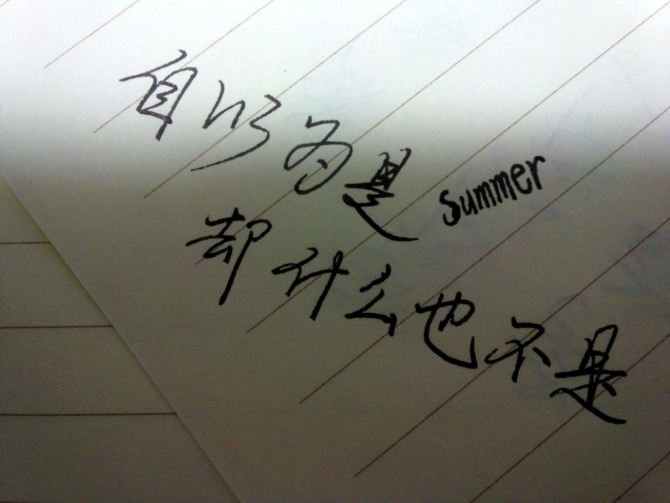 自以为是 summer
却什么也不是